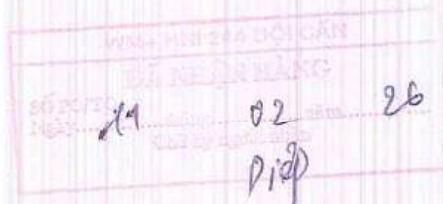 WM+ HNI 29A ĐỘI CẤN
ĐÃ NHẬN HÀNG
SỐ PO/TO
Ngày 11 tháng 02 năm 26
Chữ ký
Diệp